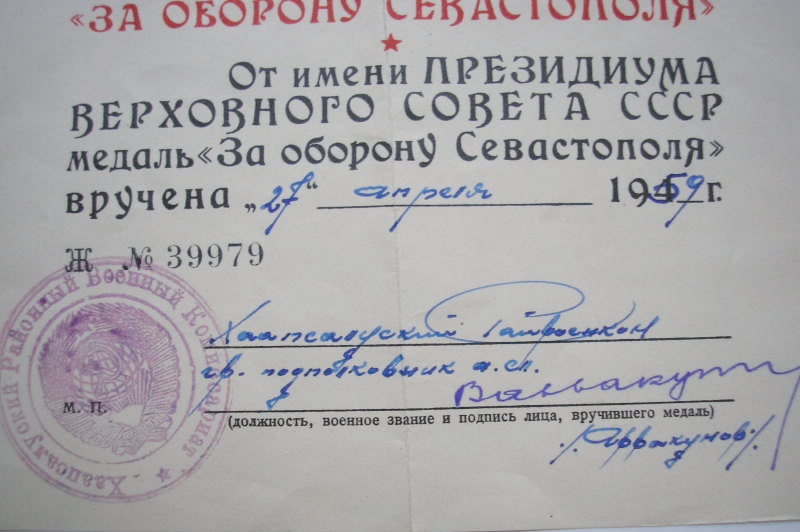 «ЗА ОБОРОНУ СЕВАСТОПОЛЯ»
От имени ПРЕЗИДИУМА
ВЕРХОВНОГО СОВЕТА СССР
медаль «За оборону Севастополя»
вручена „27“ апреля 1959 г.
Ж № 39979
Хаапсалуский
гв. подполковник
М. П.
(должность, военное звание и подпись лица, вручившего медаль)
/Аввакумов/
Хаапсалуский Районный Военный Комиссариат